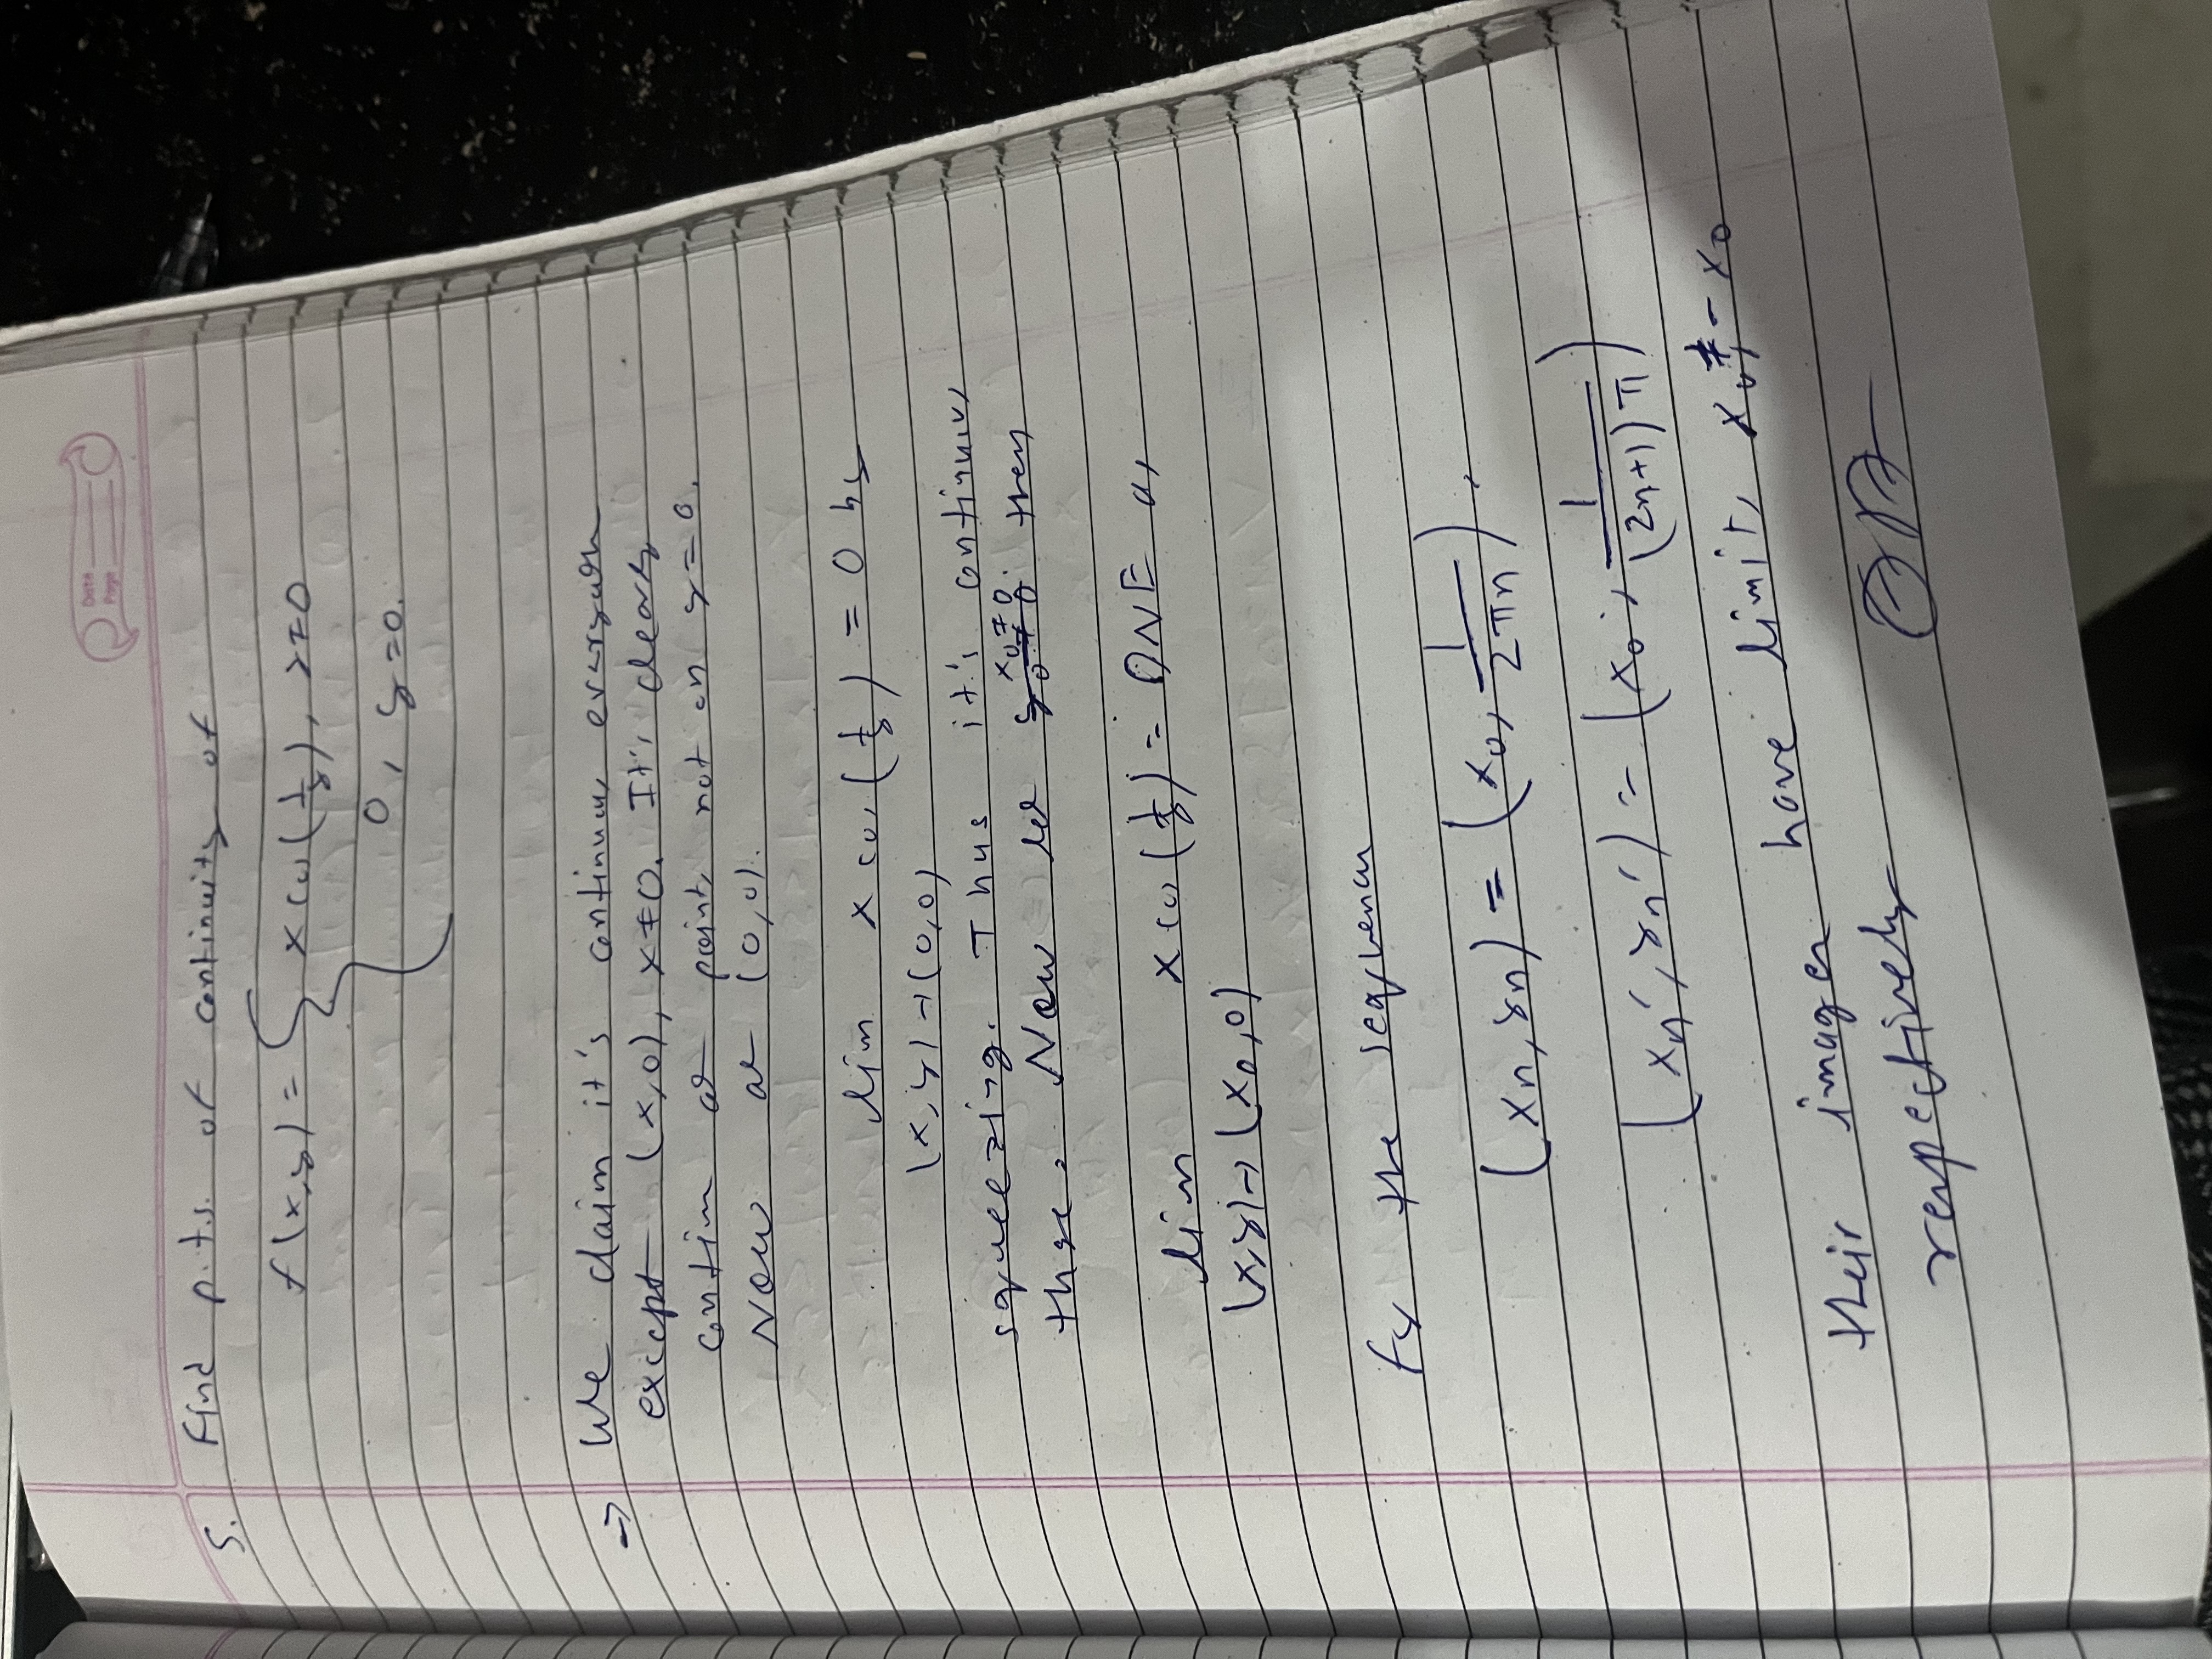 Date
Page
5. Find p.t.s. of continuity of
f(x,y) = { x cos(1/y), y≠0
0, y=0.
→ We claim it's continuous everywhere
except (x,0), x≠0. It's clearly
contin at points not on y=0.
Now at (0,0).
lim x cos(1/y) = 0 by
(x,y)→(0,0)
squeezing. Thus it's continuous
there. Now let x₀≠0. then
lim x cos(1/y) = DNE as
(x,y)→(x₀,0)
for the sequences
(xn, yn) = (x₀, 1/2πn),
(xn', yn') = (x₀, 1/(2n+1)π)
their images have limits x₀, -x₀
respectively